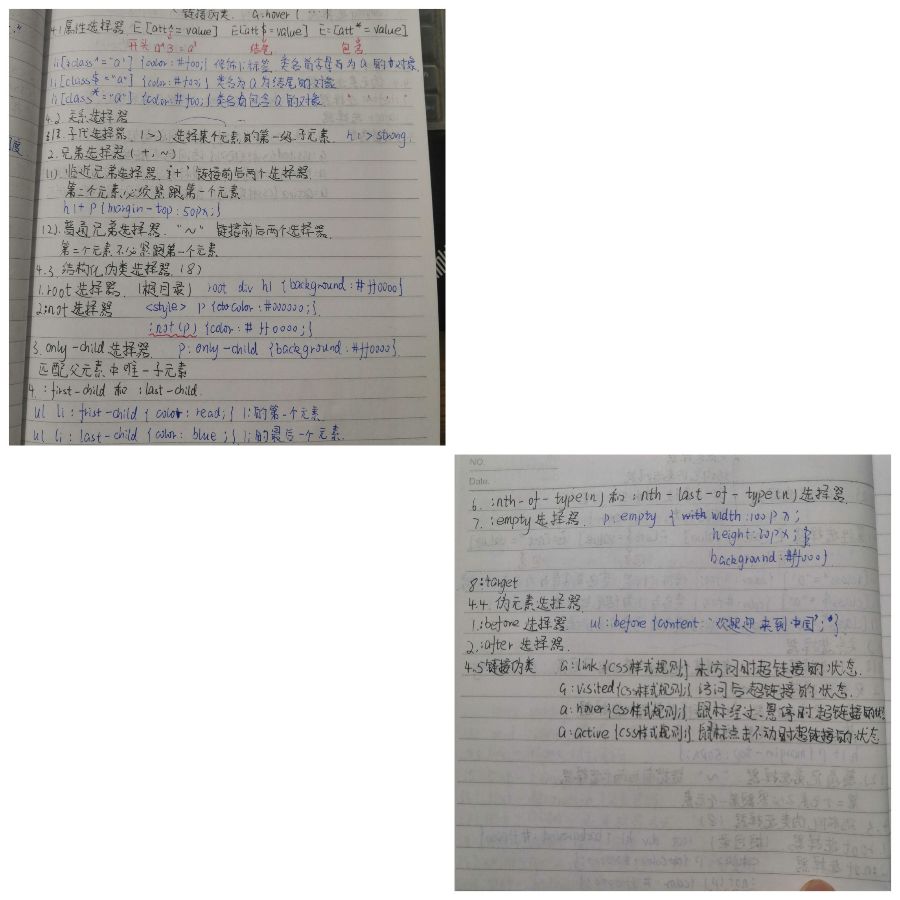 链接伪类 a:hover { }
4.1属性选择器 E[att^=value] E[att$=value] E=[att*=value]
开头 a^3=a' 结尾 包含
li[class^="a"] {color:#f00;} 修饰li标签 类名首字母为a的对象
li[class$="a"] {color:#f00;} 类名为a为结尾的对象
li[class*="a"] {color:#f00;} 类名有包含a的对象
4.2 关系选择器
子代选择器 (>) 选择某个元素的第一级子元素 h1>strong.
2.兄弟选择器(+,~)
(1).临近兄弟选择器 "+" 链接前后两个选择器
第二个元素必须紧跟第一个元素
h1+p{margin-top:50px;}
(2).普通兄弟选择器. "~" 链接前后两个选择器.
第二个元素不必紧跟第一个元素
4.3.结构化伪类选择器(8)
1.root选择器. (根目录) root div h1 {background:#ff0000}
2:not选择器 <style> p{color:#000000;}
:not(p) {color:#ff0000;}
3.only-child选择器 p:only-child {background:#ff0000}
匹配父元素中唯一子元素
4. :first-child 和 :last-child.
ul li:frist-child{color:read;} li的第一个元素
ul li:last-child{color:blue;} li的最后一个元素
NO.
Date.
6. :nth-of-type(n)和:nth-last-of-type(n)选择器
7. :empty选择器. p:empty { width:100px;
height:20px;
background:#ff000}
8:target
4.4.伪元素选择器
1.:before选择器 ul:before{content:"欢迎来到中国";}
2.:after选择器.
4.5链接伪类 a:link{css样式规则;} 未访问时超链接的状态
a:visited{css样式规则;} 访问后超链接的状态.
a:hover{css样式规则;} 鼠标经过.悬停时超链接的状
a:active{css样式规则;} 鼠标点击不动时超链接的状态